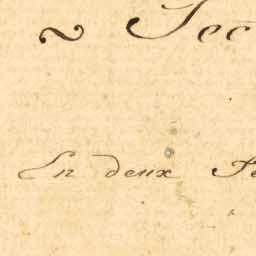 ~ Sec
En deux Pa